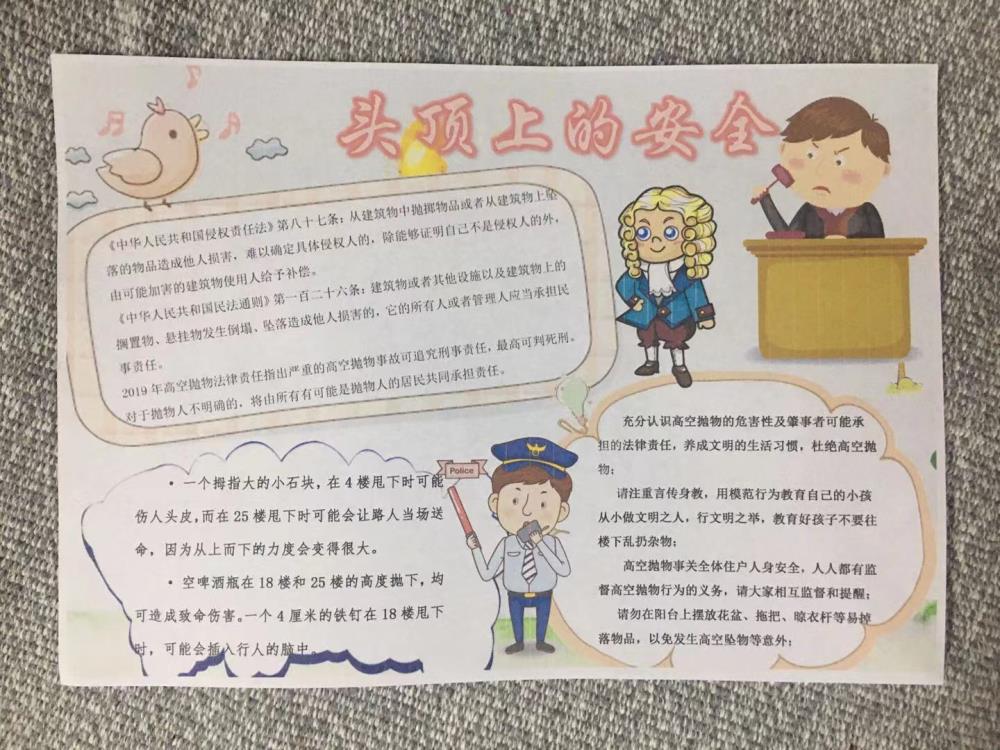 头顶上的安全
《中华人民共和国侵权责任法》第八十七条：从建筑物中抛掷物品或者从建筑物上坠
落的物品造成他人损害，难以确定具体侵权人的，除能够证明自己不是侵权人的外，
由可能加害的建筑物使用人给予补偿。
《中华人民共和国民法通则》第一百二十六条：建筑物或者其他设施以及建筑物上的
搁置物、悬挂物发生倒塌、坠落造成他人损害的，它的所有人或者管理人应当承担民
事责任。
2019年高空抛物法律责任指出严重的高空抛物事故可追究刑事责任，最高可判死刑。
对于抛物人不明确的，将由所有有可能是抛物人的居民共同承担责任。
·一个拇指大的小石块，在4楼甩下时可能
伤人头皮，而在25楼甩下时可能会让路人当场送
命，因为从上而下的力度会变得很大。
·空啤酒瓶在18楼和25楼的高度抛下，均
可造成致命伤害。一个4厘米的铁钉在18楼甩下
时，可能会插入行人的脑中。
Police
充分认识高空抛物的危害性及肇事者可能承
担的法律责任，养成文明的生活习惯，杜绝高空抛
物；
请注重言传身教，用模范行为教育自己的小孩
从小做文明之人，行文明之举，教育好孩子不要往
楼下乱扔杂物；
高空抛物事关全体住户人身安全，人人都有监
督高空抛物行为的义务，请大家相互监督和提醒；
请勿在阳台上摆放花盆、拖把、晾衣杆等易掉
落物品，以免发生高空坠物等意外；